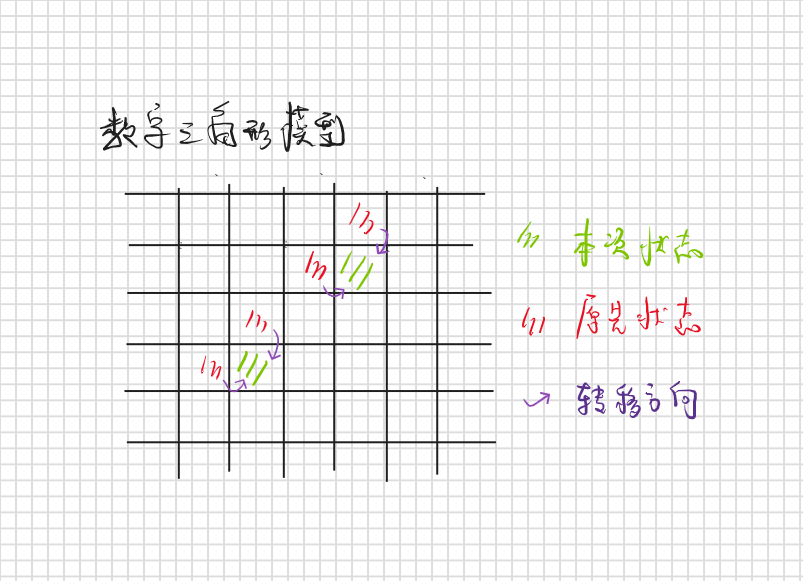 数字三角形模型
本次状态
原先状态
转移方向